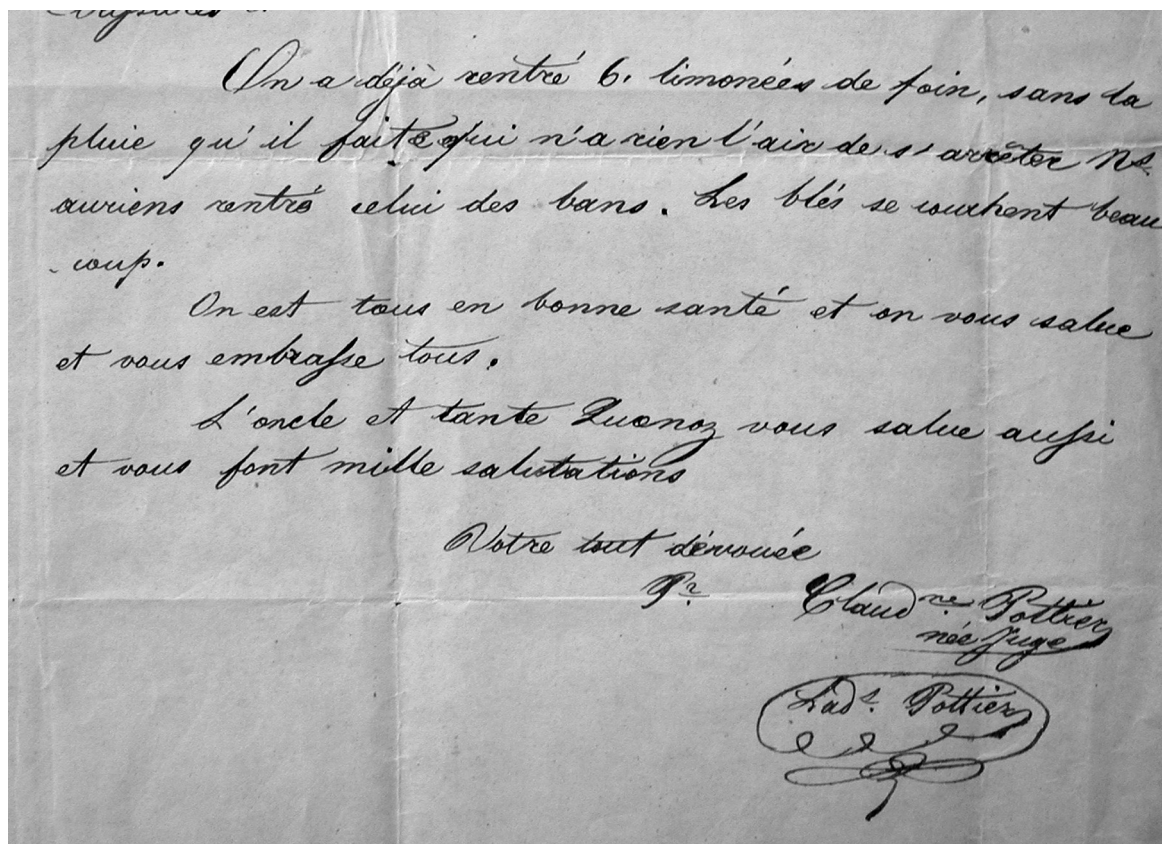 On a déjà rentré 6. limonées de foin, sans la
pluie qu'il fait & qui n'a rien l'air de s'arrêter Ns.
auriens rentré celui des bans. Les blés se couchent beau
- coup.
On est tous en bonne santé et on vous salue
et vous embrasse tous.
L'oncle et tante Quenoz vous salue aussi
et vous font mille salutations
Votre tout dévouée
Pr. Claudne Pottier
née Juge
Lads. Pottier